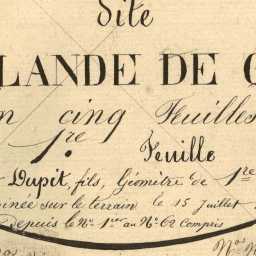 Dite
LANDE DE
cinq Feuilles
1re
Feuille
Dupit, fils, Géomètre de 1re
sur le terrain le 15 Juillet
depuis le No. 1er au No. 62 Compris
Nos